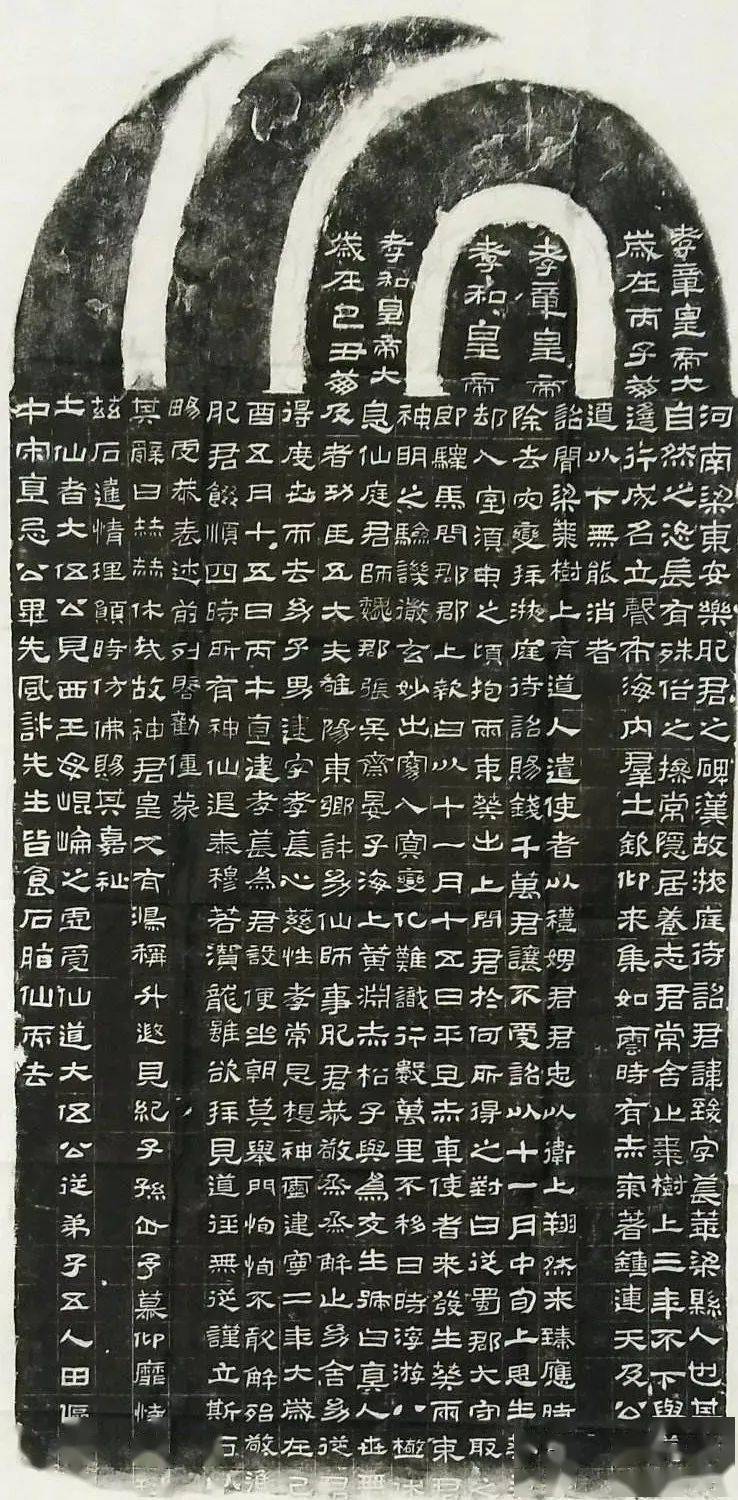 孝章皇帝大
歲在丙子葘
孝章皇帝
孝和皇帝
孝和皇帝大
歲在己丑葘
河南梁東安樂肥君之碑漢故掖庭待詔君諱致字萇華梁縣人也其
自然之恣長有殊俗之操常隱居養志君常舍止棗樹上三年不下與
遙行成名立聲布海內羣士欽仰來集如雲時有赤氣著鍾連天及公
遼以下無能消者
詔聞梁棗樹上有道人遣使者以禮娉君君忠以衛上翔然來臻應時
除去灾變拜掖庭待詔賜錢千萬君讓不受詔以十一月中旬上思生葵
却入室須臾之頃抱兩束葵出上問君於何所得之對曰從蜀郡大守取之
即驛馬問郡郡上報曰以十一月十五日平旦赤車使者來發生葵兩束君
神明之驗譏徹玄妙出窈入冥變化難識行數萬里不移日時浮游八極休
息仙庭君師魏郡張吳齋晏子海上黃淵赤松子與為友生號曰真人世無
及者功臣五大夫雒陽東鄉許幼仙師事肥君恭敬烝烝解止幼舍幼從君
得度世而去幼子男建字孝萇心慈性孝常思想神靈建寧二年大歲在己
酉五月十五日丙午直建孝萇為君設便坐朝莫舉門恂恂不敢解殆敬進
肥君餟順四時所有神仙退泰穆若潛龍雖欲拜見道徑無從謹立斯石以
暢虔恭表述前列啓勸僮蒙
其辭曰赫赫休哉故神君皇又有鴻稱升遐見紀子孫企予慕仰靡恃
茲石達情理願時仿佛賜其嘉祉
土仙者大伍公見西王母崐崘之虛受仙道大伍公從弟子五人田傴
中宋直忌公畢先風許先生皆食石脂仙而去